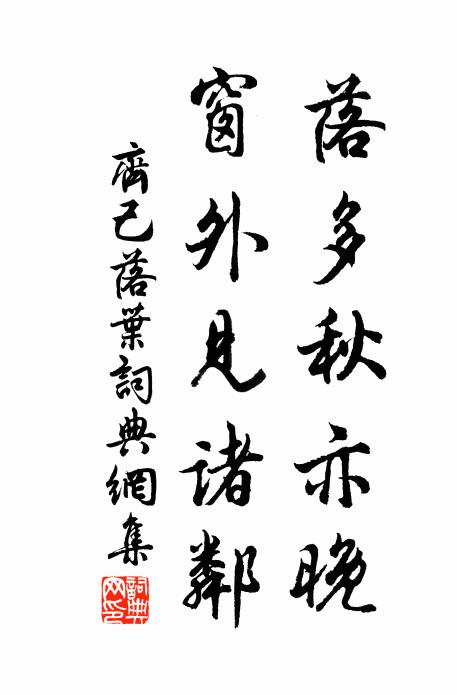 落多秋亦晚
窗外見諸鄰
齊己落葉詞典網集
詞典網印